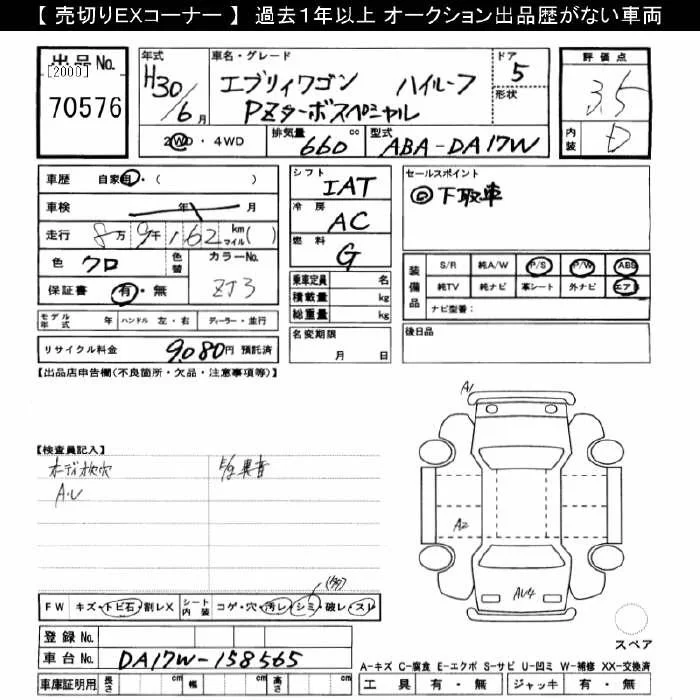 【 売切りEXコーナー 】 過去１年以上 オークション出品歴がない車両
出品No. 年式 車名・グレード ドア 評価点
[2000] H30 エブリイワゴン ハイルーフ 5 3.5
70576 6月 PZターボスペシャル 形状
2WD・4WD 排気量 660 cc 型式 ABA-DA17W 内装 D
車歴 自家用・( ) シフト IAT セールスポイント
車検 年 月 冷房 AC ◎下取車
走行 8万9千162 km マイル ( ) 燃料 G
色 クロ 色替 カラーNo. 装備品 S/R 純A/W P/S P/W ABS
保証書 有・無 ZJ3 乗車定員 名 純TV 純ナビ 革シート 外ナビ エアB
積載量 kg ナビ型番：
モデル年式 年 ハンドル 左・右 ディーラー・並行 総重量 kg
リサイクル料金 9,080円 預託済 名変期限 月 日 後日品
【出品店申告欄(不良箇所・欠品・注意事項等)】
A1
【検査員記入】
A2
AU4
FW キズ・トビ石・割レX シート内装 コゲ・穴・汚レ・シミ・破レ・スレ
登録No.
車台No. DA17W-158565
スペア
A-キズ C-腐食 E-エクボ S-サビ U-凹ミ W-補修 XX-交換済
車庫証明用 長さ cm 幅 cm 高さ cm 工具 有・無 ジャッキ 有・無